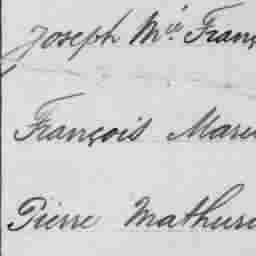 Joseph Mie Franç
François Marie
Pierre Mathuri